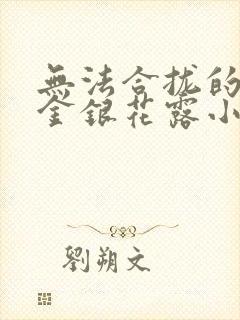 無法合拢的
金銀花露小
劉朔文